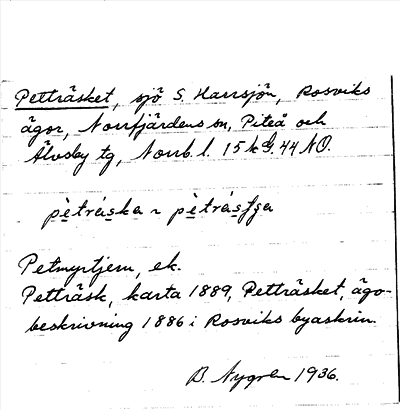 Petträsket, sjö S. Harrsjön, Rosviks
ägor, Norrfjärdens sn, Piteå och
Älvsby tg, Norrb. l. 15k G. 44 NO.
pètráska ~ pètrásʃʒa
Petmyrtjern, ek.
Petträsk, karta 1889, Petträsket, ägo-
beskrivning 1886 i Rosviks byaskrin.
B. Nygren 1936.